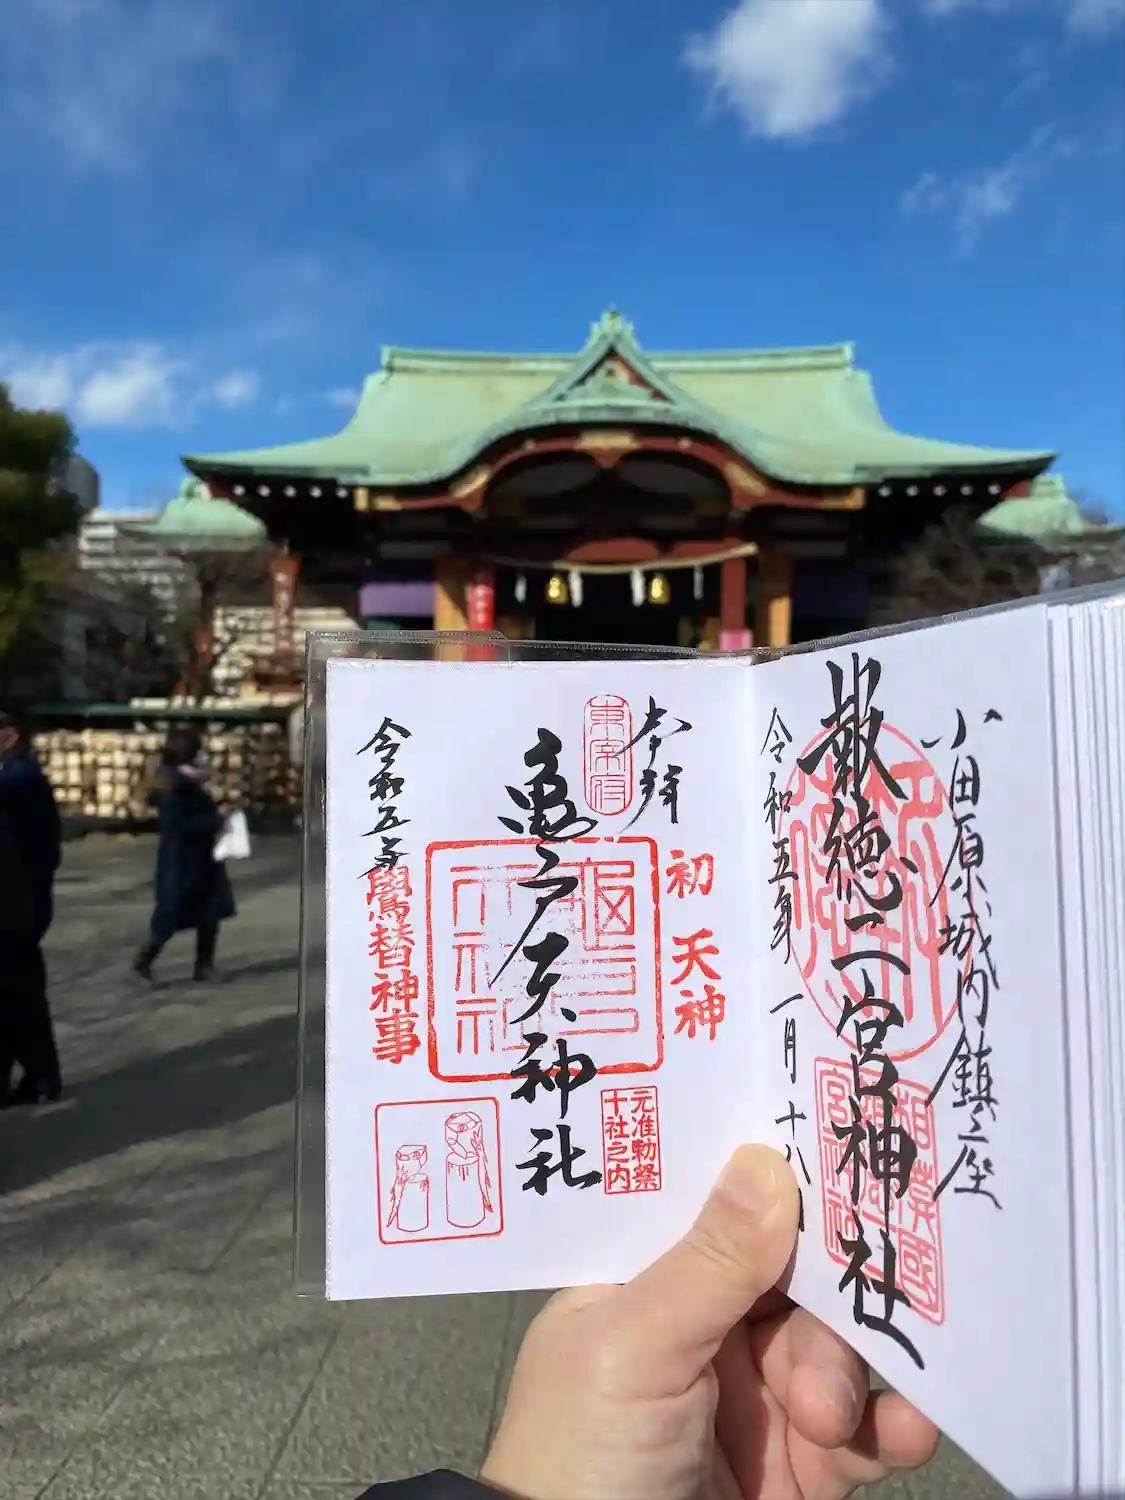 小田原城内鎮座
報徳二宮神社
相模國
令和五年 一月十八
奉拝
東宰府
初天神
亀戸天神社
元准勅祭
十社之内
令和五年
鷽替神事